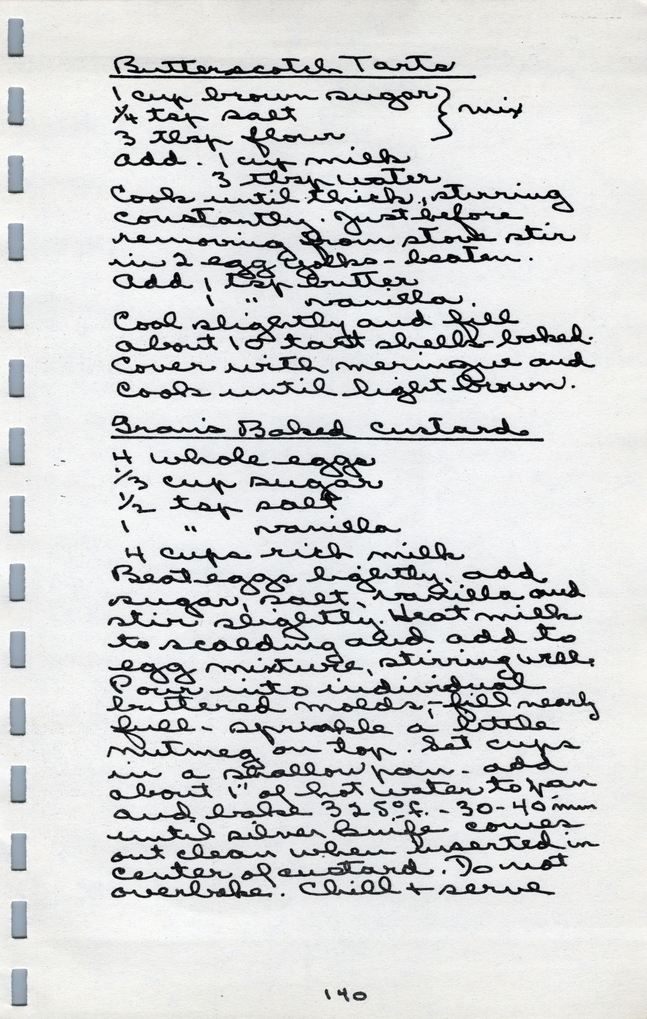 Butterscotch Tarts
1 cup brown sugar } mix
1/4 tsp salt
3 tbsp flour
add. 1 cup milk
3 tbsp water
Cook until thick, stirring
constantly. Just before
removing from stove stir
in 2 egg yolks - beaten.
Add 1 tsp butter
1 " vanilla.
Cool slightly and fill
about 10 tart shells-baked.
Cover with meringue and
cook until light brown.
Gran's Baked Custard
4 whole eggs
1/3 cup sugar
1/2 tsp salt
1 " vanilla
4 cups rich milk
Beat eggs lightly, add
sugar, salt, vanilla and
stir slightly. Heat milk
to scalding and add to
egg mixture, stirring well.
Pour into individual
buttered molds, - fill nearly
full - sprinkle a little
nutmeg on top. Set cups
in a shallow pan - add
about 1" of hot water to pan
and bake 325° f. - 30-40 min
until silver knife comes
out clean when inserted in
center of custard. Do not
overbake. Chill + serve
140